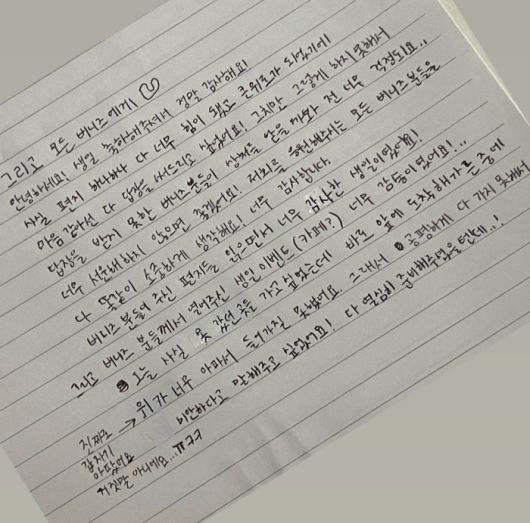 그리고 모든 버니즈에게! ♡
안녕하세요! 생일 축하해주셔서 정말 감사해요!
사실 편지 하나하나 다 너무 힘이 됐고 큰 위로가 되었기에
마음 같아선 다 답장을 써드리고 싶었어요! 그치만 그렇게 하지 못해서
답장을 받지 못한 버니즈분들이 상처를 받을까봐 전 너무 걱정되요..
너무 서운해하지 않으면 좋겠어요! 저희를 응원해주시는 모든 버니즈분들을
다 똑같이 소중하게 생각해요! 너무 감사합니다.
버니즈분들이 주신 편지를 읽으면서 너무 감사한 생일이었어요!
그리고 버니즈 분들께서 열어주신 생일 이벤트(카페?) 너무 감동이었어요!..
오늘 사실 못 갔던 곳을 가고 싶었는데 바로 앞에 도착해가는 중에
→ 위가 너무 아파서 들어가질 못했어요. 그래서 공평하게 다 가지 못해서
미안하다고 말해주고 싶었어요! 다 열심히 준비해주셨을텐데..!
진짜로
갑자기
아팠어요
거짓말 아니에요...ㅠㅋㅋ